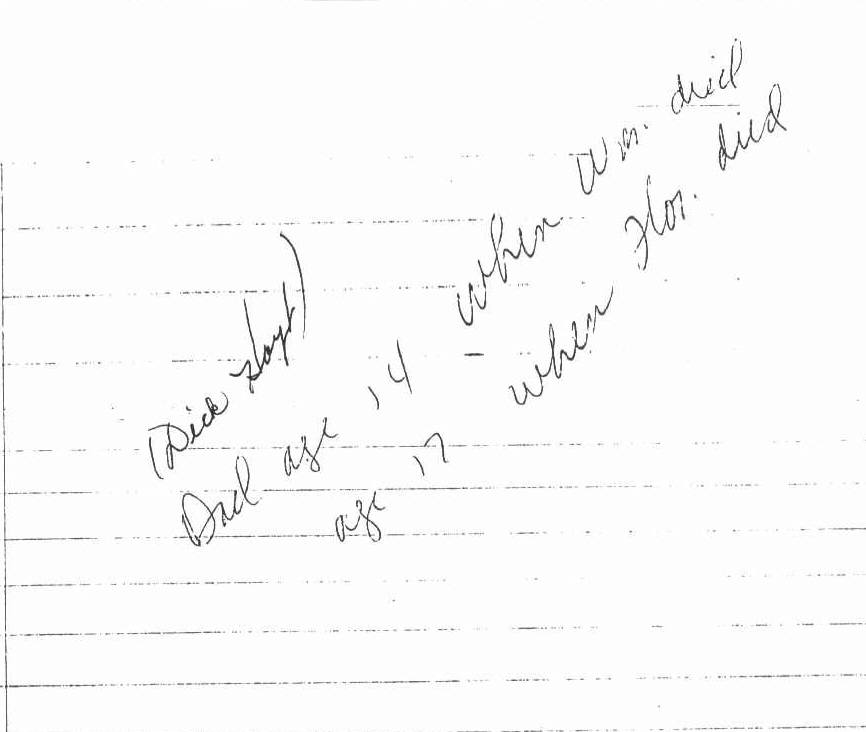 (Dick Hoyt)
Dad age 14 - when Wm. died
age 17 when Flor. died